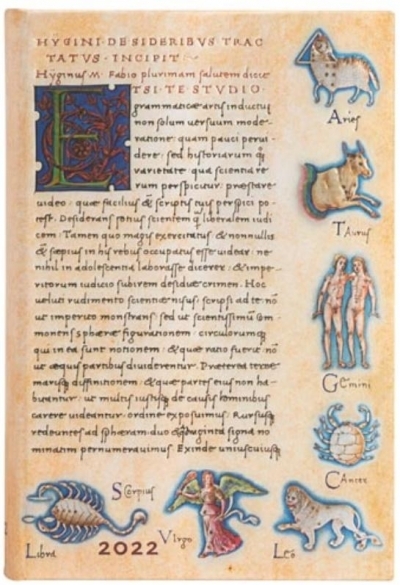 HYGINI·DE SIDERIBVS TRAC
TATVS·INCIPIT
Hyginus·M·Fabio plurimam salutem dicit
ETSI·TE STVDIO·
grammaticæ artis inductum
non solum uersuum mode-
ratione· quam pauci perui-
dere· sed historiarum qq
uarietate qua scientiæ re-
rum perspicitur præstare
uideo· quæ facilius & scriptis tuis perspici po-
test· Desiderans potius scientem q liberalem iudi
cem· Tamen quo magis exercitatus & nonnullis
& sæpius in his rebus occupatus esse uidear· ne
nihil in adolescentia laborasse dicerer· & impe-
ritorum iudicio subirem desidiæ crimen· Hoc
ueluti rudimento scientiæ nisus scripsi ad te· nō
ut imperito monstrans· sed ut scientissimū com-
monens sphæræ figurationem· circulorumq
qui in ea sunt notionem· & quæ ratio fuerit· nō
ut æquis partibus diuiderentur· Præterea terræ
marisq diffinitionem· & quæ partes eius non ha-
bitantur· ut multis iustisq de causis hominibus
carere uideantur· ordine exposuimus· Rursusq
redeuntes ad sphæram· duo & signa no
minatim pernumerauimus· Exinde uniuscuiusq
Aries
Taurus
Gemini
Cancer
Scorpius
Virgo
Leo
Libra
2022